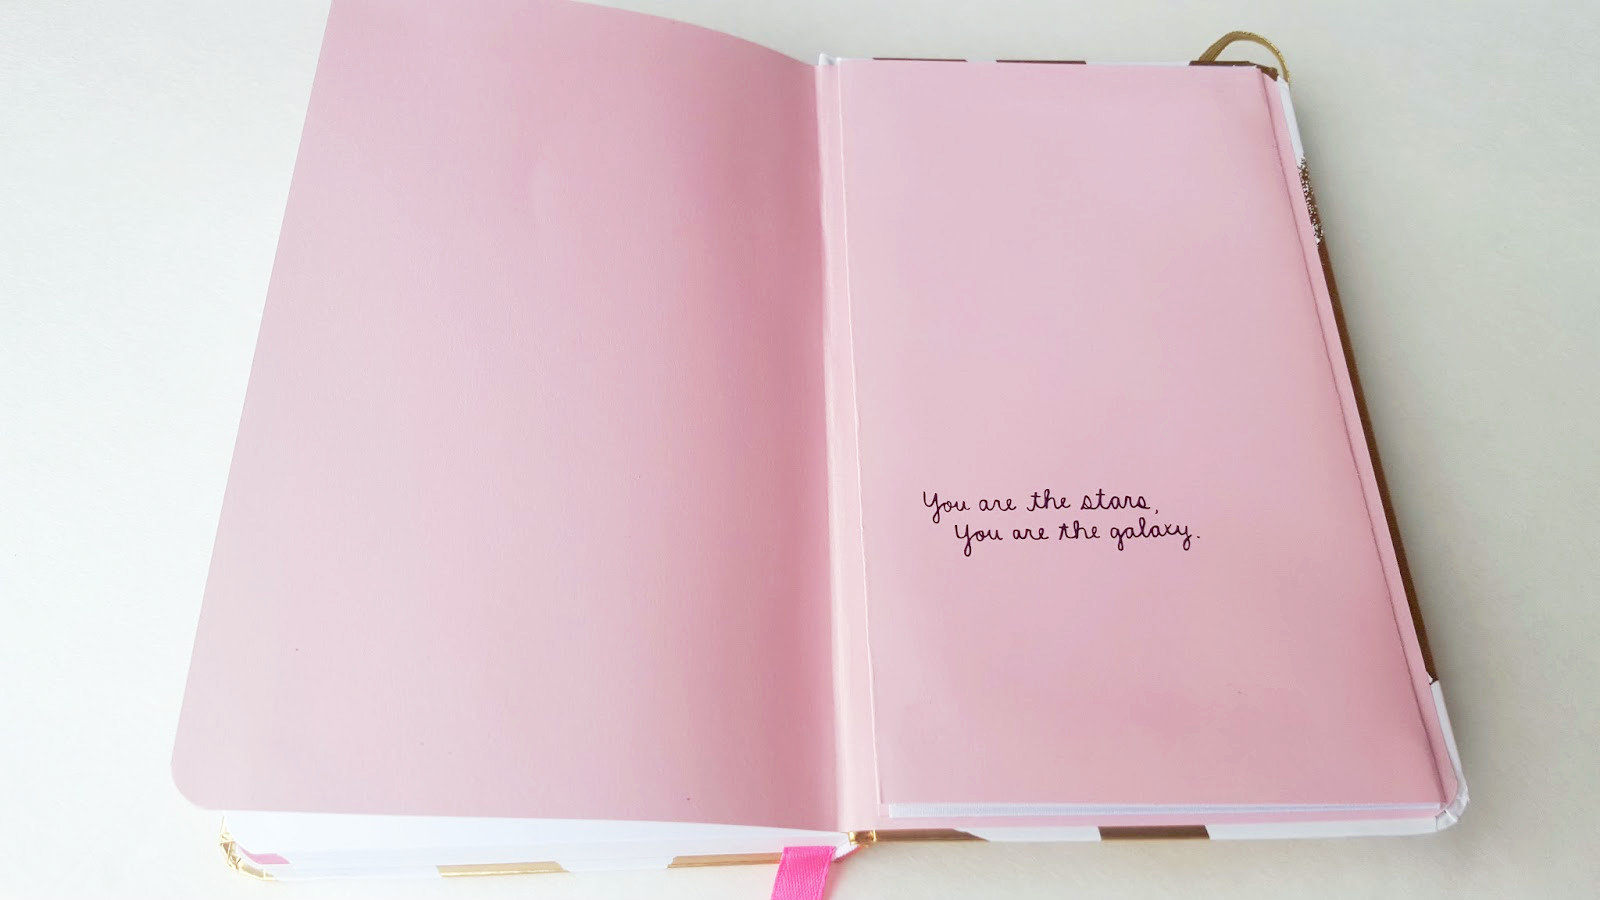 You are the stars,
You are the galaxy.